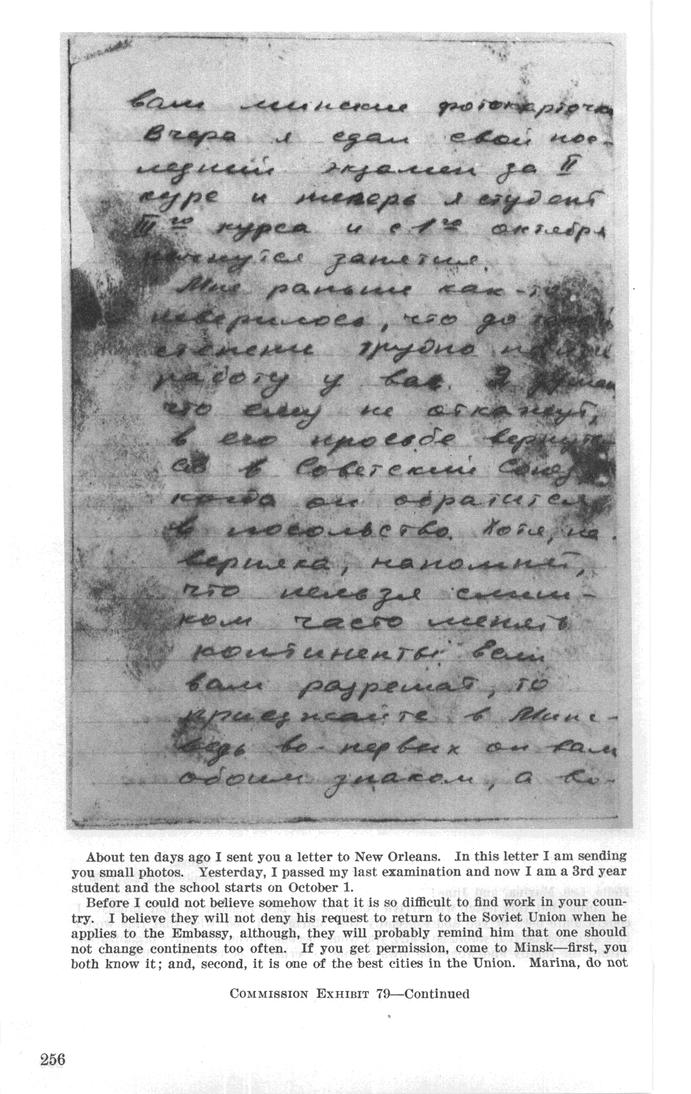 вам минские фотокарточки
Вчера я сдал свой пос-
ледний экзамен за II
курс и теперь я студент
III го курса и с 1го октября
начнутся занятия.
Мне раньше как-то
неверилось, что до такой
степени трудно найти
работу у вас. Я думаю
что ему не откажут,
в его просьбе вернуть-
ся в Советский Союз,
когда он обратится
в посольство. Хотя, на-
верняка, напомнят,
что нельзя слиш-
ком часто менять
континенты. Если
вам разрешат, то
приезжайте в Минс-
ведь во-первых он вам
обоим знаком, а во-
About ten days ago I sent you a letter to New Orleans. In this letter I am sending
you small photos. Yesterday, I passed my last examination and now I am a 3rd year
student and the school starts on October 1.
Before I could not believe somehow that it is so difficult to find work in your coun-
try. I believe they will not deny his request to return to the Soviet Union when he
applies to the Embassy, although, they will probably remind him that one should
not change continents too often. If you get permission, come to Minsk—first, you
both know it; and, second, it is one of the best cities in the Union. Marina, do not
COMMISSION EXHIBIT 79—Continued
256